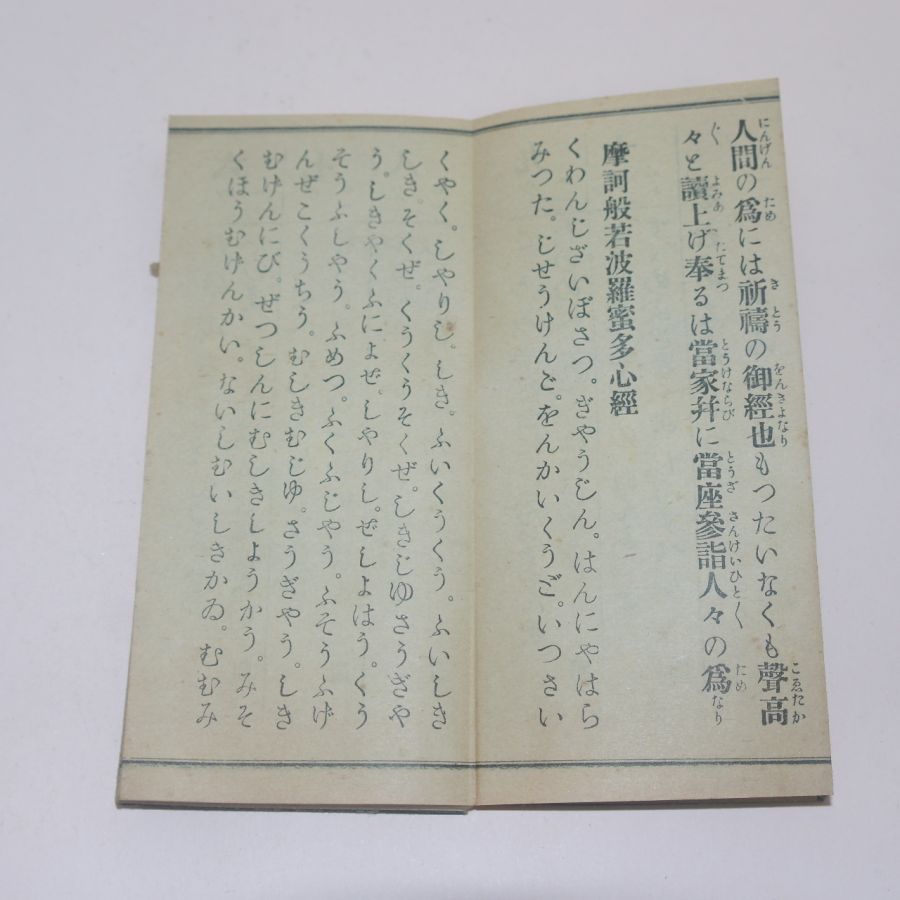 人間の為には祈禱の御經也もつたいなくも聲高
々と讀上げ奉るは當家幷に當座參詣人々の爲
摩訶般若波羅蜜多心經
くわんじざいぼさつ。ぎやうじん。はんにやはら
みつた。じせうけんご。をんかいくうご。いつさい
くやく。しやりし。しき。ふいくうくう。ふいしき
しき。そくぜ。くうくうそくぜ。しきじゆさうぎや
う。しきやくふによぜ。しやりし。ぜしよはう。くう
そうふしやう。ふめつ。ふくふじやう。ふそうふげ
んぜこくうちう。むしきむじゆ。さうぎやう。しき
むげんにび。ぜつしんにむしきしようかう。みそ
くほうむげんかい。ないしむいしきかゐ。むむみ